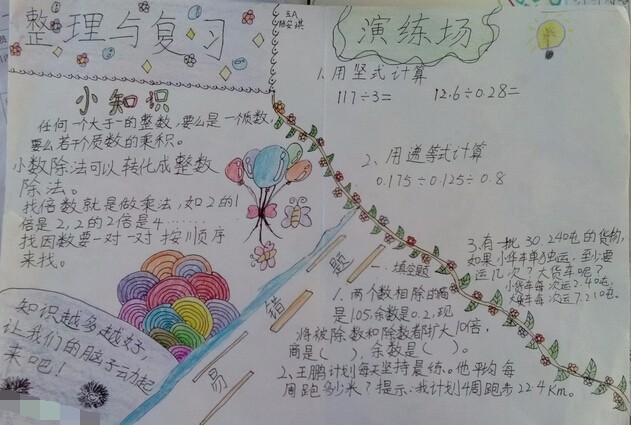 整理与复习
五A
小知识
任何一个大于一的整数,要么是一个质数,
要么若干个质数的乘积。
小数除法可以转化成整数
除法。
找倍数就是做乘法,如2的1
倍是2,2的2倍是4……
找因数要一对一对按顺序
来找。
知识越多越好,
让我们的脑子动起
来吧!
演练场
1.用坚式计算
117÷3= 12.6÷0.28=
2、用递等式计算
0.175÷0.125÷0.8
3.有一批30.240吨的货物,
如果小华车单独运,至少要
运几次?大货车呢?
小货车每次运2.40吨,
大货车每次运7.210吨。
易错题
一、填空题
1.两个数相除的商
是105,余数是0.2,现
将被除数和除数者阝扩大10倍,
商是( ),余数是( )。
2、王鹏计划每天坚持晨练。他平均每
周跑多少米?提示:我计划4周跑步22.4Km。